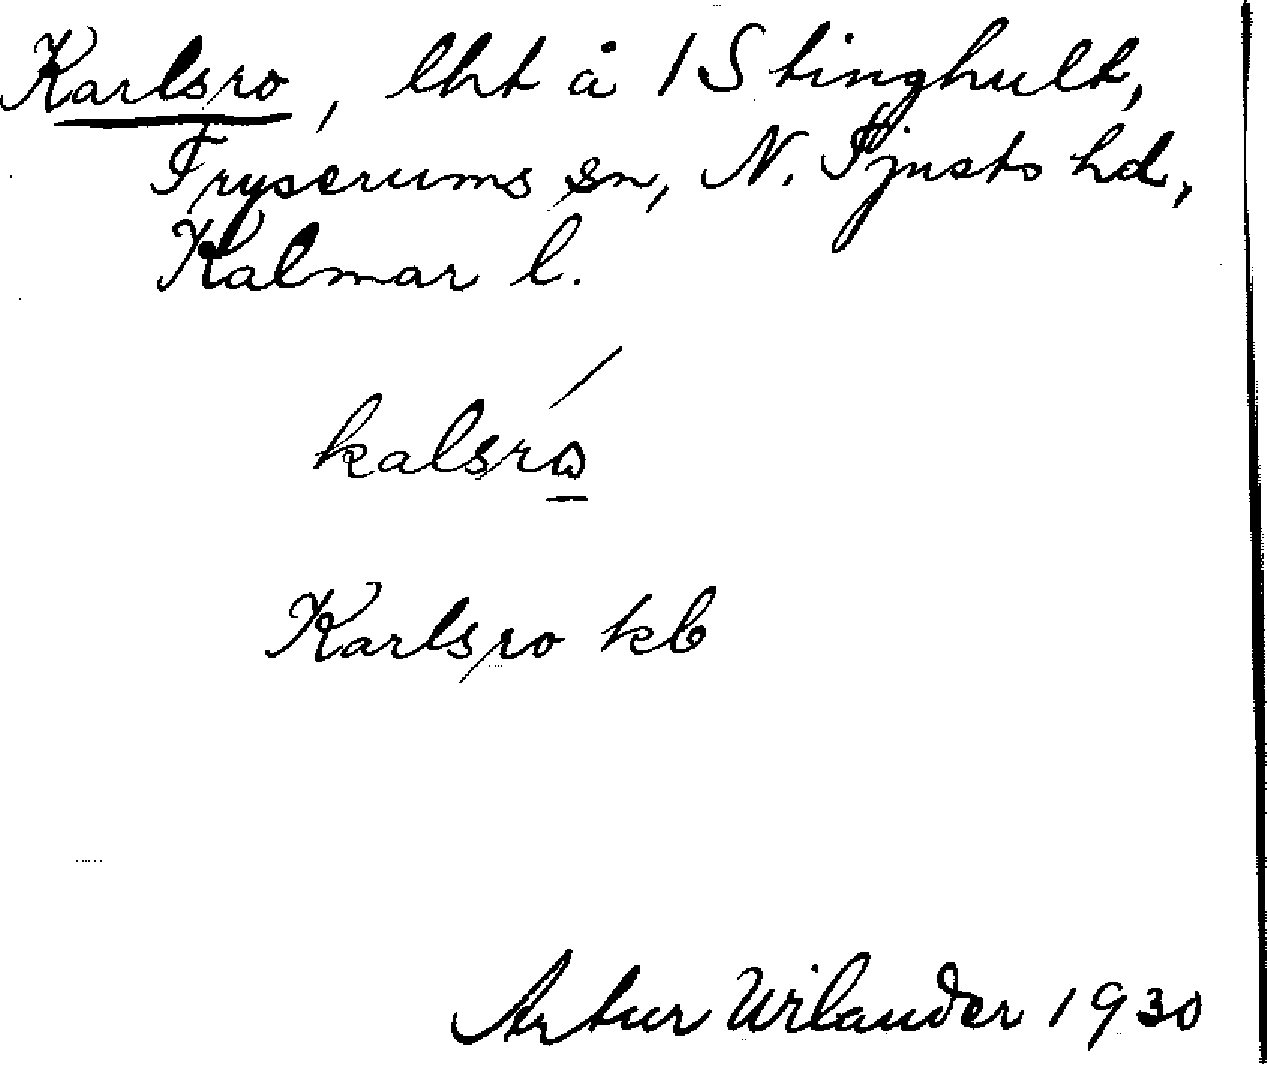 Karlsro, lht å 1 Stinghult,
Fryserums sn, N. Tjusts hd,
Kalmar l.
kalsró
Karlsro kb
Artur Wilander 1930